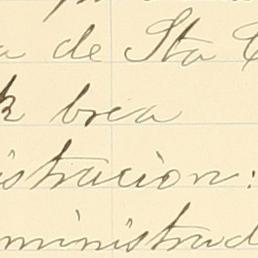 a de Sta C
k brea
istracion:
ministrad